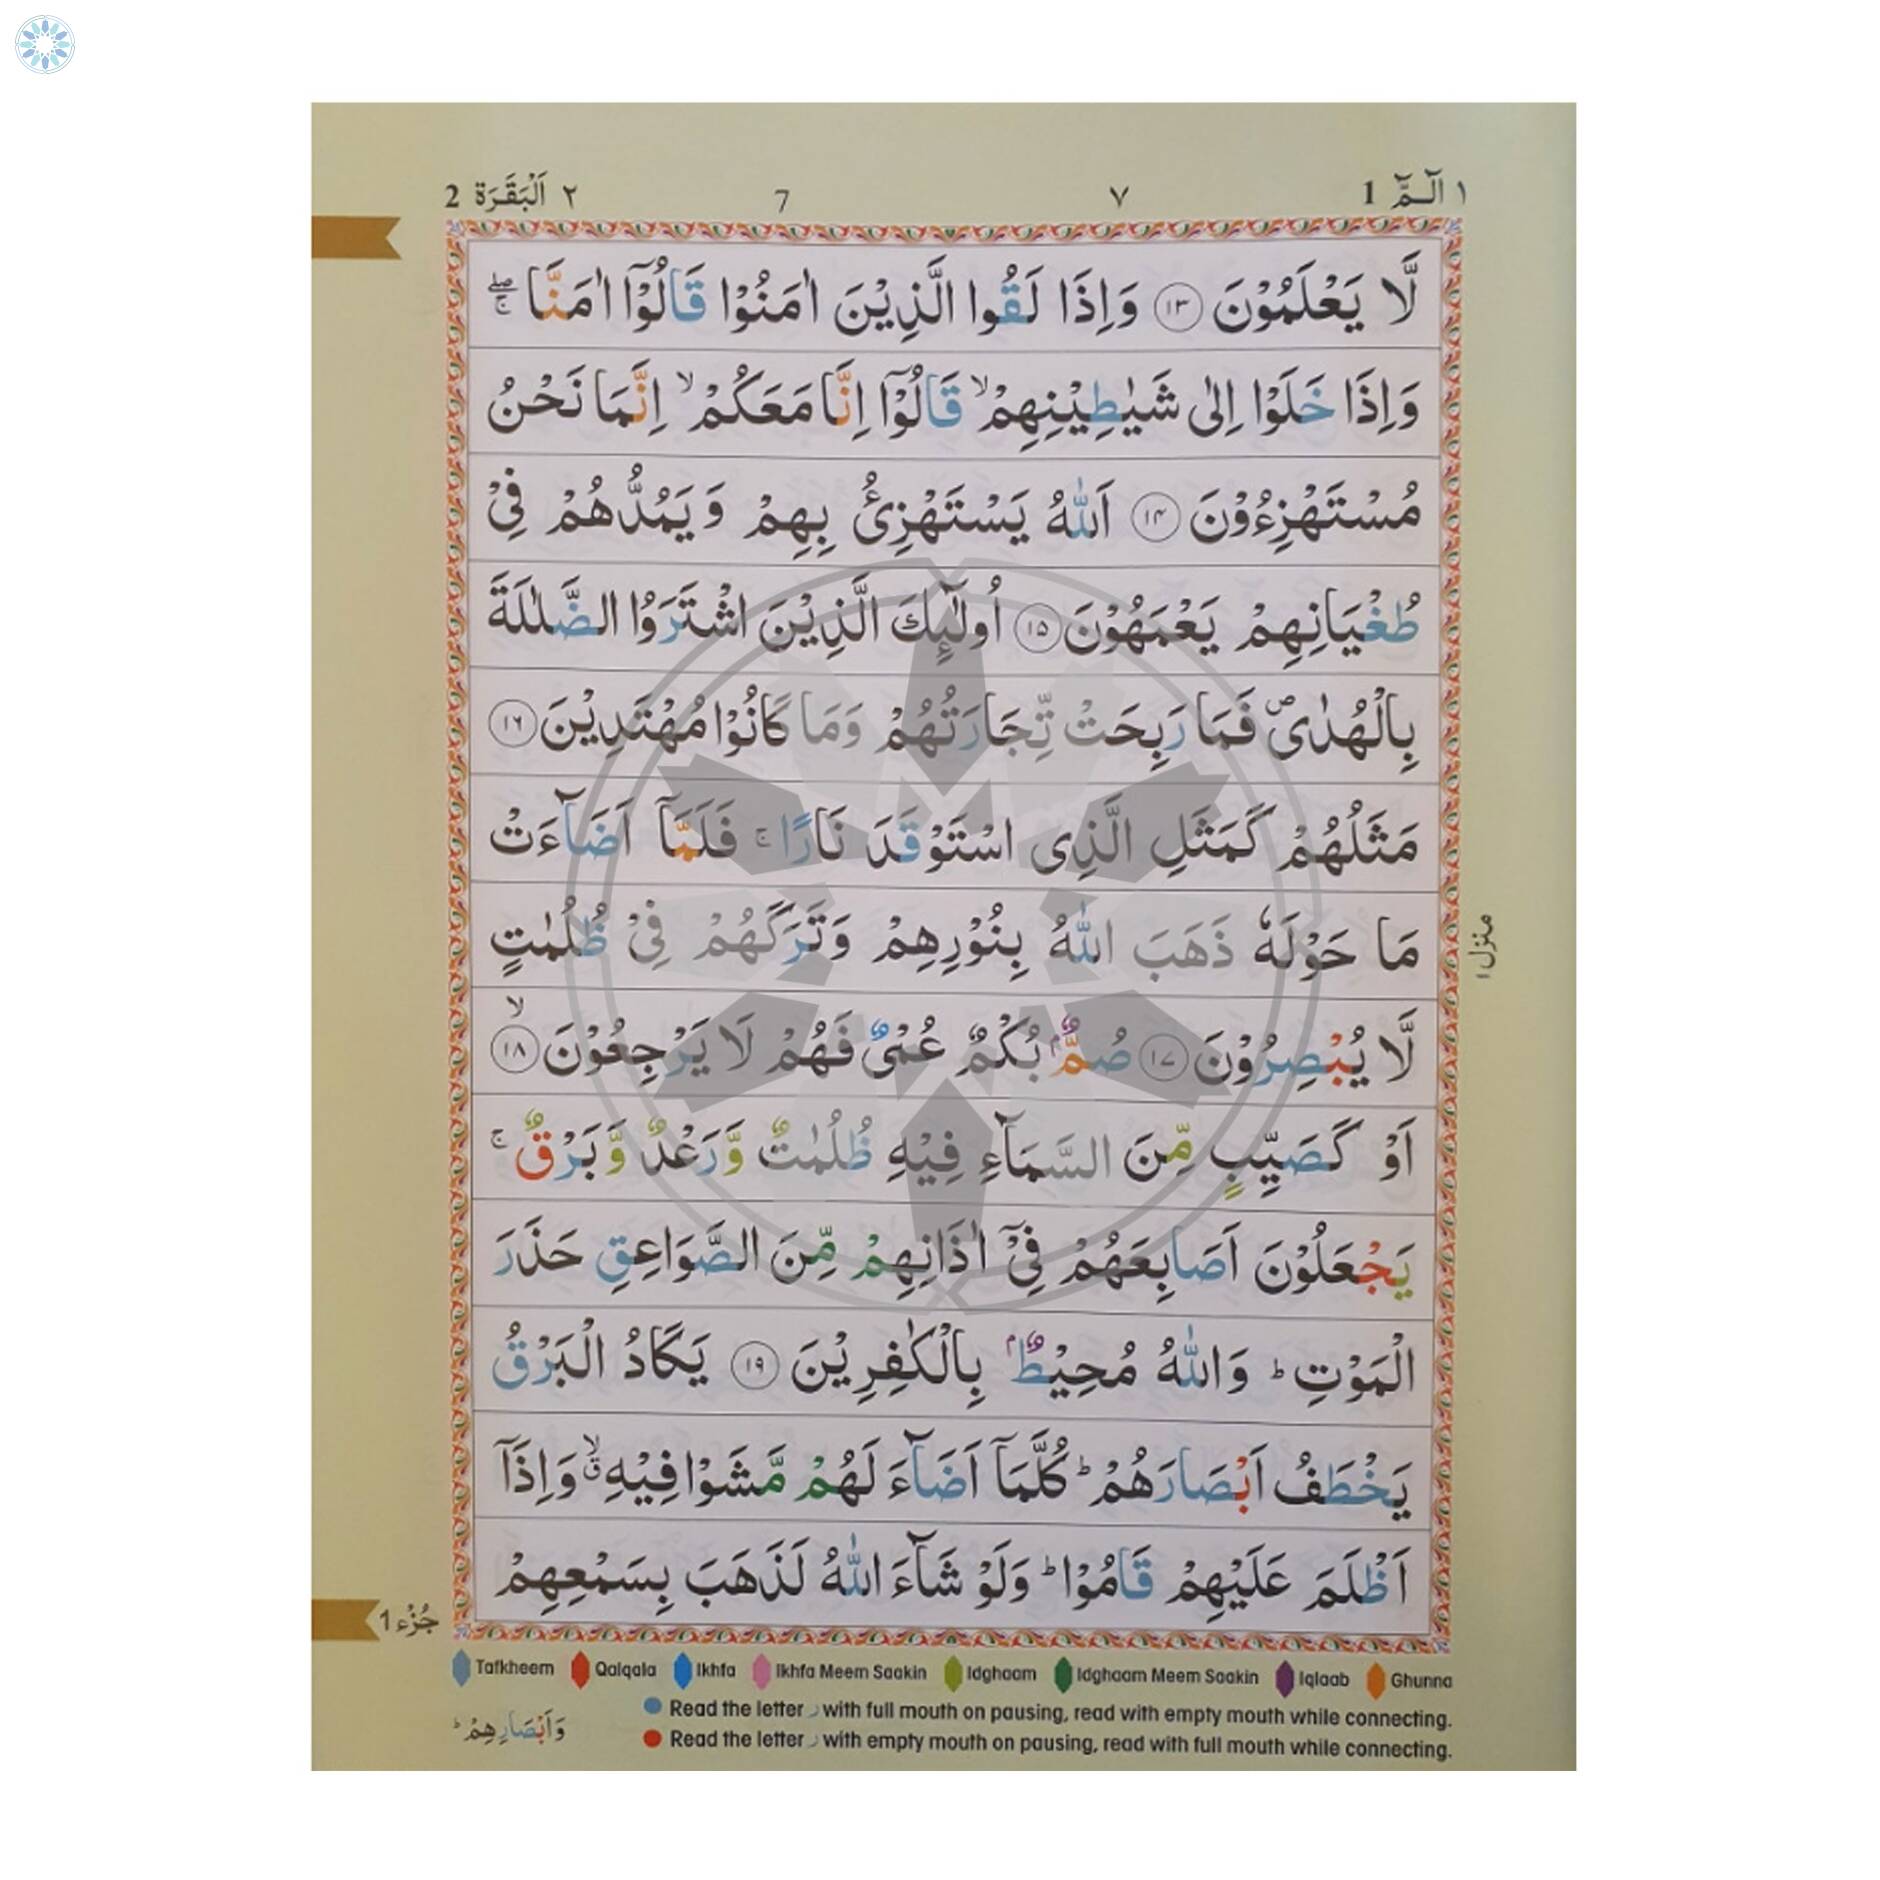 ١ الٓـمّٓ 1 ٧ 7 ٢ اَلْبَقَرَة 2
لَّا يَعْلَمُوْنَ ﴿١٣﴾ وَاِذَا لَقُوا الَّذِيْنَ اٰمَنُوْا قَالُوْٓا اٰمَنَّا ۖۚ
وَاِذَا خَلَوْا اِلٰى شَيٰطِيْنِهِمْ ۙ قَالُوْٓا اِنَّا مَعَكُمْ ۙ اِنَّمَا نَحْنُ
مُسْتَهْزِءُوْنَ ﴿١٤﴾ اَللّٰهُ يَسْتَهْزِئُ بِهِمْ وَيَمُدُّهُمْ فِيْ
طُغْيَانِهِمْ يَعْمَهُوْنَ ﴿١٥﴾ اُولٰٓئِكَ الَّذِيْنَ اشْتَرَوُا الضَّلٰلَةَ
بِالْهُدٰى ۪ فَمَا رَبِحَتْ تِّجَارَتُهُمْ وَمَا كَانُوْا مُهْتَدِيْنَ ﴿١٦﴾
مَثَلُهُمْ كَمَثَلِ الَّذِى اسْتَوْقَدَ نَارًا ۚ فَلَمَّآ اَضَآءَتْ
مَا حَوْلَهٗ ذَهَبَ اللّٰهُ بِنُوْرِهِمْ وَتَرَكَهُمْ فِيْ ظُلُمٰتٍ
لَّا يُبْصِرُوْنَ ﴿١٧﴾ صُمٌّۢ بُكْمٌ عُمْىٌ فَهُمْ لَا يَرْجِعُوْنَ ﴿١٨﴾ ۙ
اَوْ كَصَيِّبٍ مِّنَ السَّمَآءِ فِيْهِ ظُلُمٰتٌ وَّرَعْدٌ وَّبَرْقٌ ۚ
يَجْعَلُوْنَ اَصَابِعَهُمْ فِيْٓ اٰذَانِهِمْ مِّنَ الصَّوَاعِقِ حَذَرَ
الْمَوْتِ ؕ وَاللّٰهُ مُحِيْطٌۢ بِالْكٰفِرِيْنَ ﴿١٩﴾ يَكَادُ الْبَرْقُ
يَخْطَفُ اَبْصَارَهُمْ ؕ كُلَّمَآ اَضَآءَ لَهُمْ مَّشَوْا فِيْهِ ۙۗ وَاِذَآ
اَظْلَمَ عَلَيْهِمْ قَامُوْا ؕ وَلَوْ شَآءَ اللّٰهُ لَذَهَبَ بِسَمْعِهِمْ
منزل ١
جُزْء 1
Tafkheem Qalqala Ikhfa Ikhfa Meem Saakin Idghaam Idghaam Meem Saakin Iqlaab Ghunna
Read the letter ر with full mouth on pausing, read with empty mouth while connecting.
Read the letter ر with empty mouth on pausing, read with full mouth while connecting.
وَاَبْصَارِهِمْ ؕ